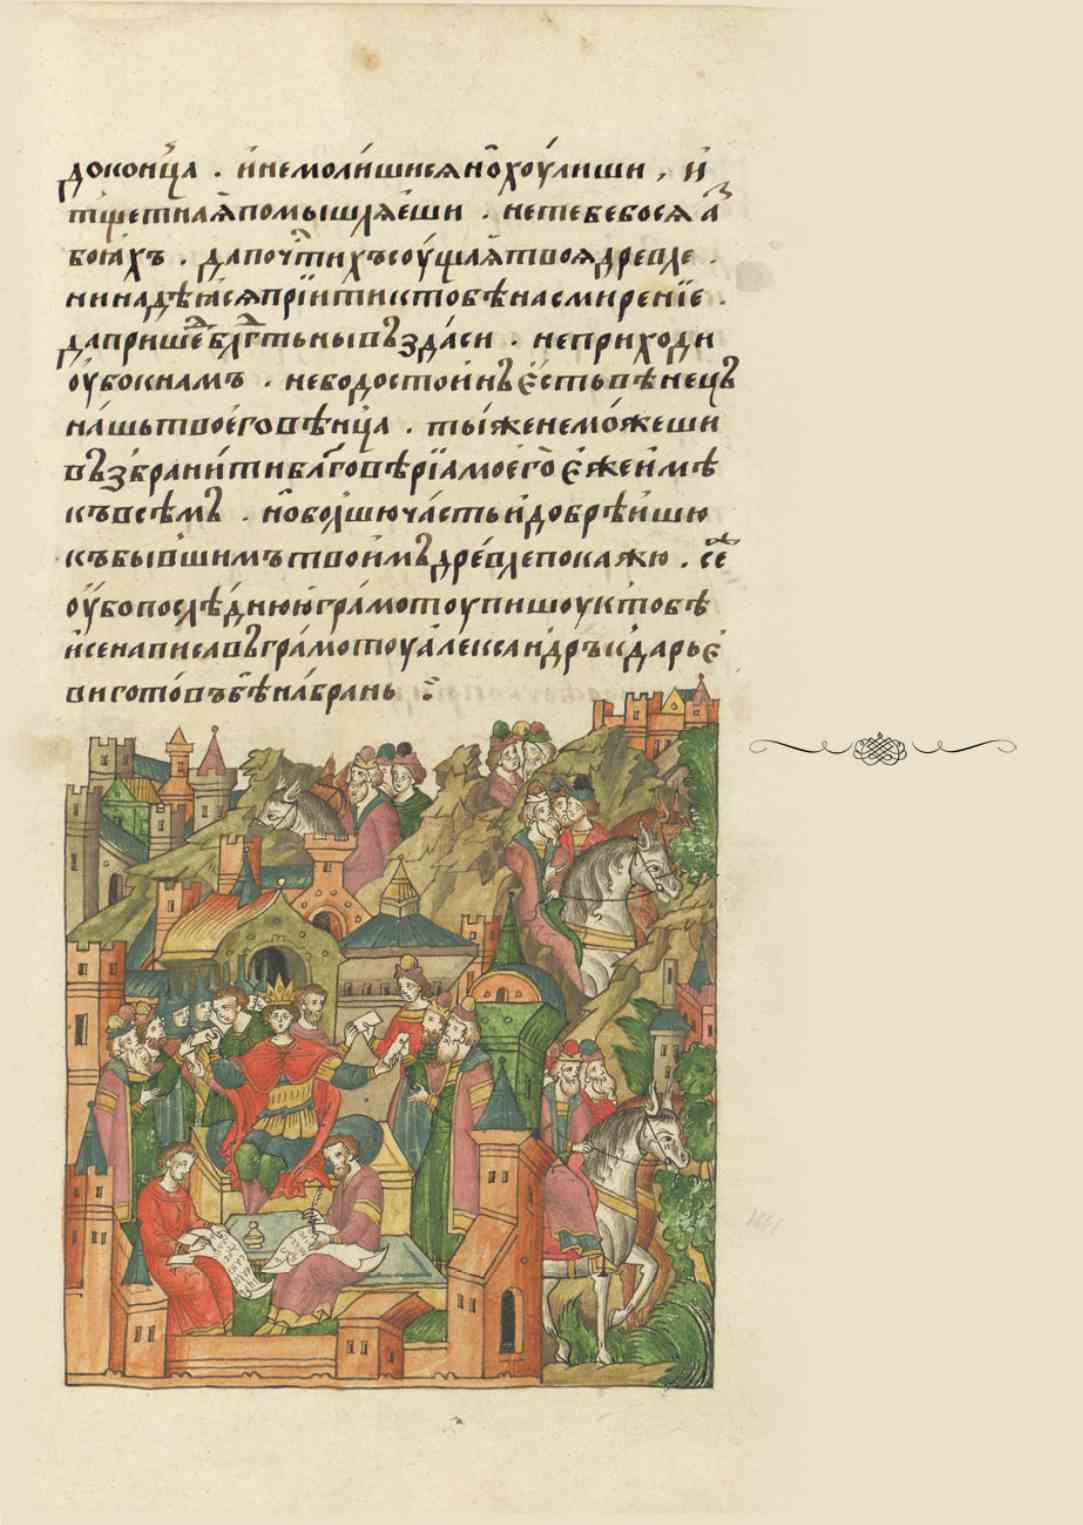 доконца . инемолишисянохоулиши , и
тщетнаяпомышляеши . нетебебося а҃
богахъ . дапочтихъсоущаятвоядревле .
нинадѣюсяпрїитиктобѣнасмиренїе .
дапришеⷣблгⷣтьнывъздаси . неприходи
оубокнамъ . небодостоинъестьвѣнецъ
нашьтвоеговѣнца . тыженеможеши
възбранитиблговѣрїамоегоежеимѣ
къвсѣмъ .ноболшюучастьидобрѣишю
къбывшимътвоимъдревлепокажю . се
оубопослѣднююграмотоупишоуктобѣ
исенаписавъграмотоуалександръкдарье
виготовъбѣнабрань